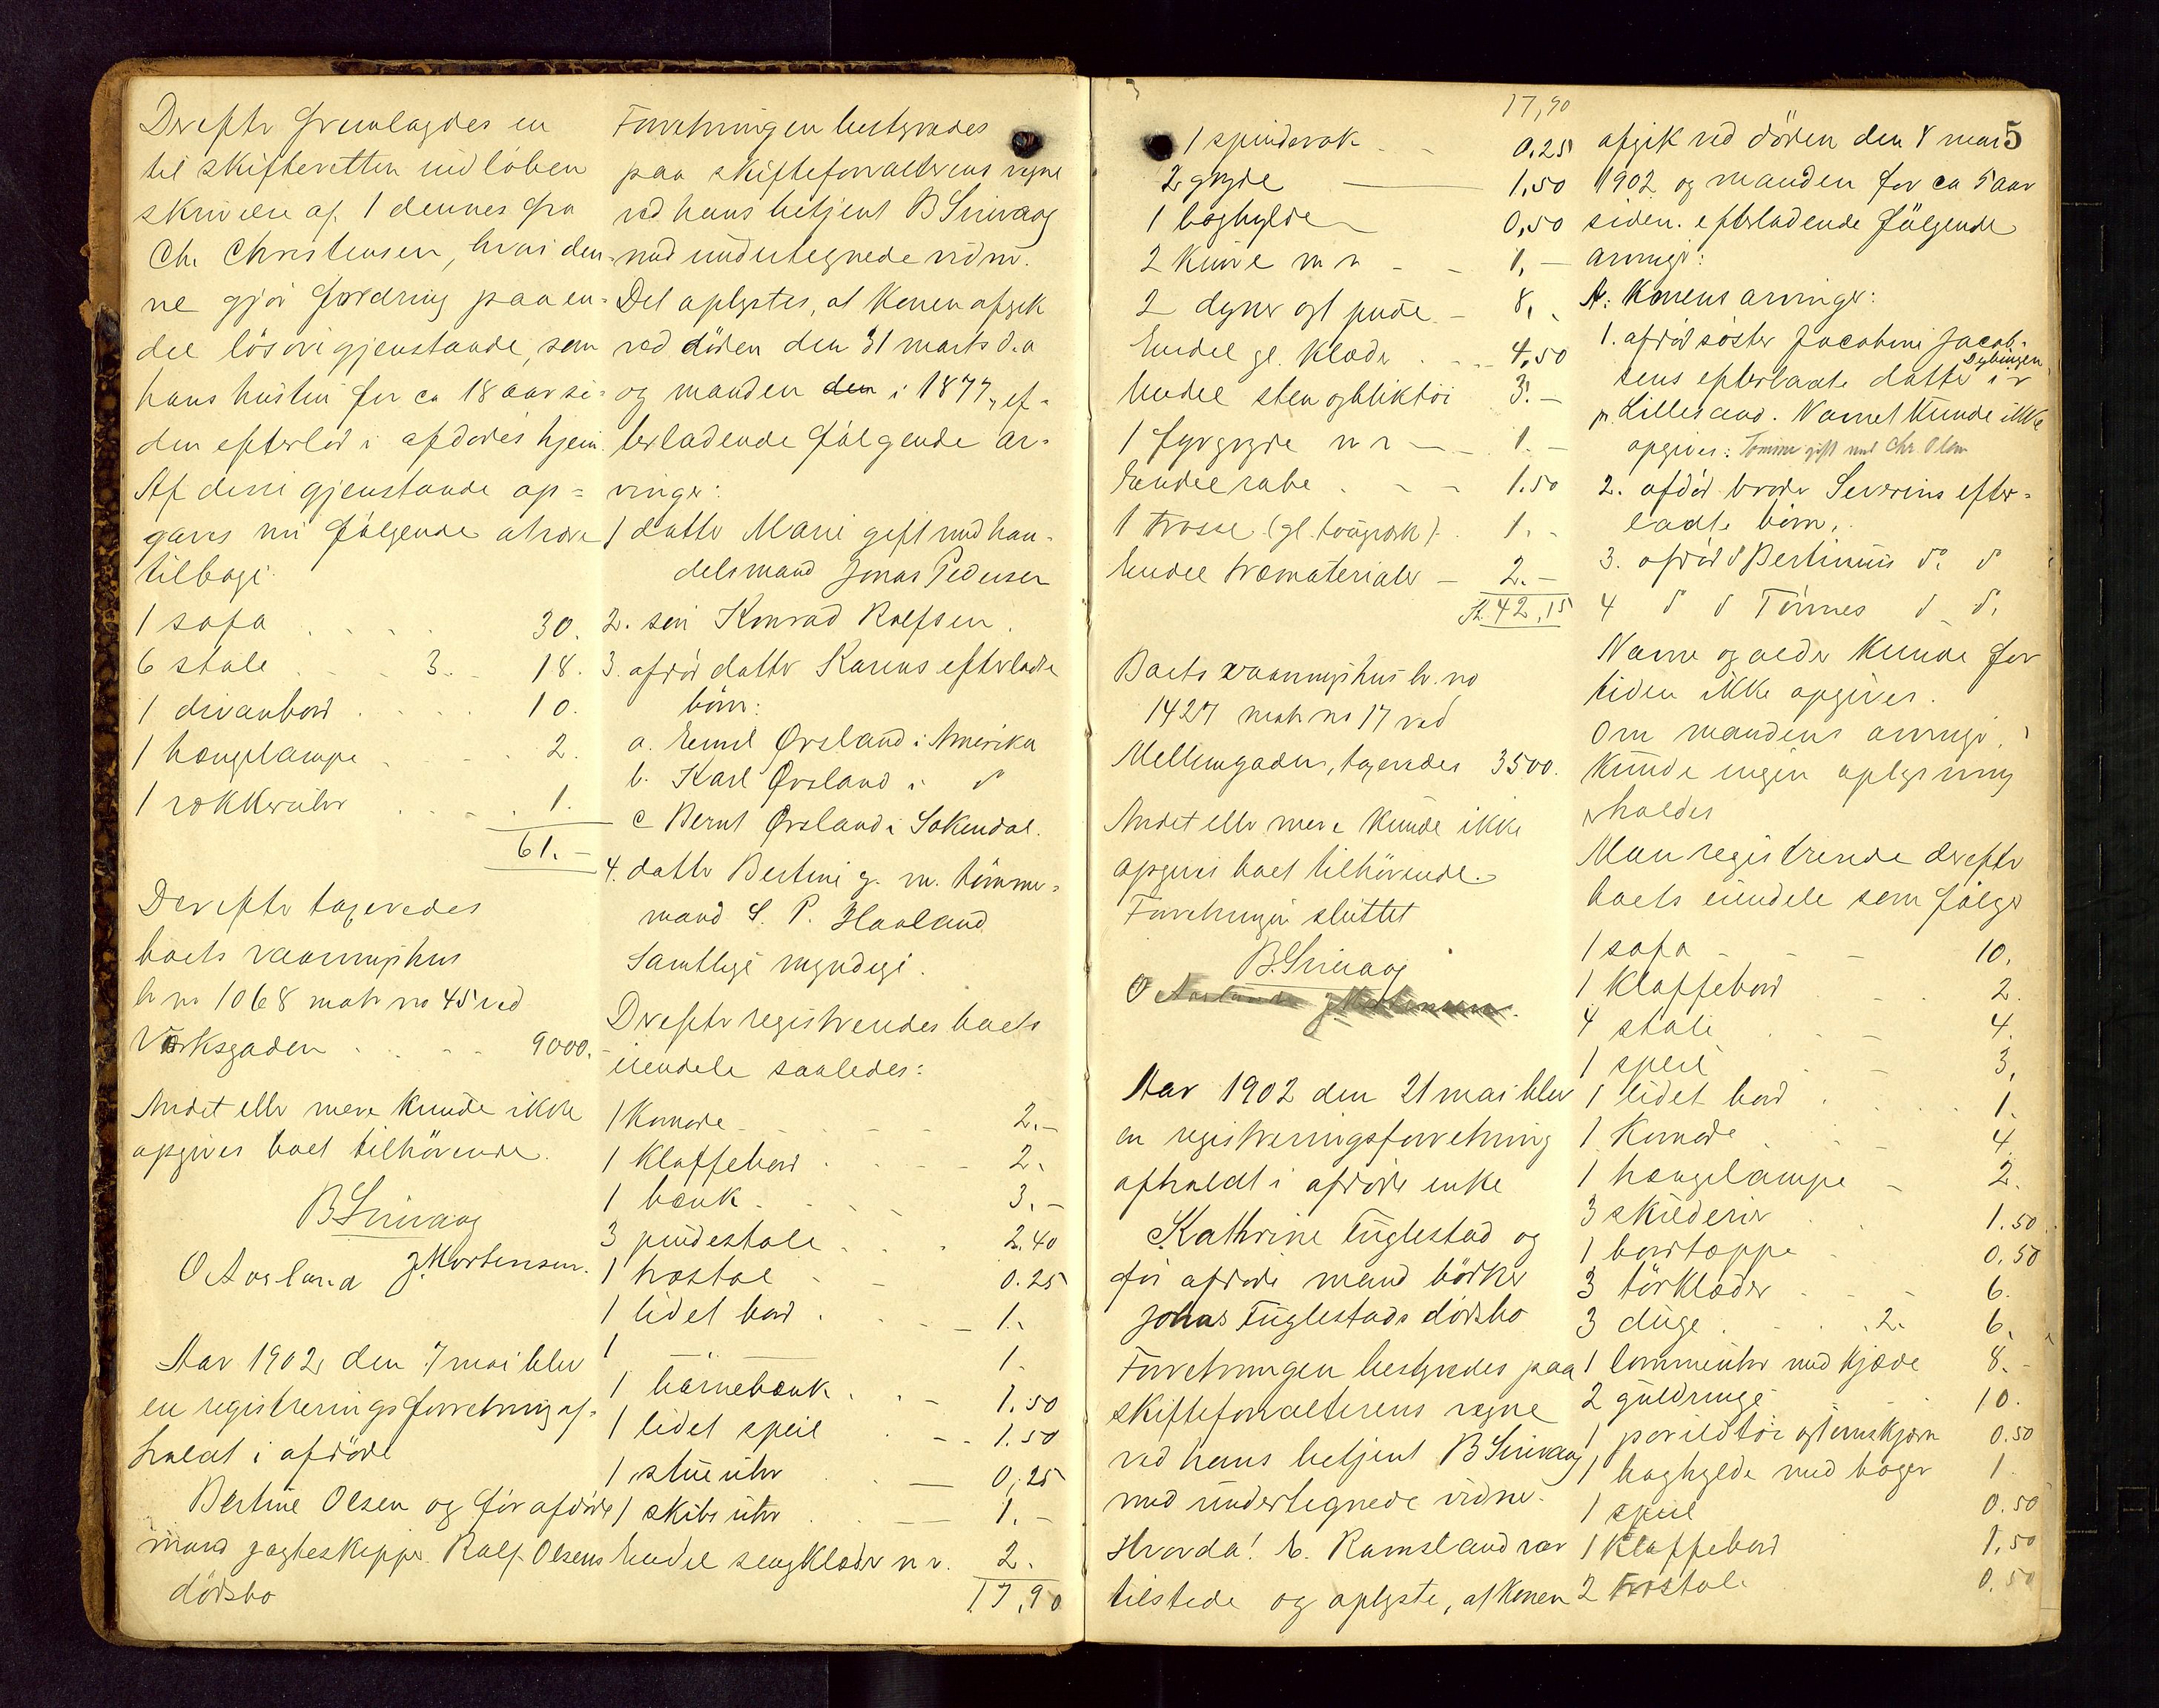 Derefter fremlagdes en
til skifteretten indløben
skrivelse af 1 dennes fra
Chr Christensen, hvori den-
ne gjør fordring paa en-
del løsøregjenstande, som
hans hustru for ca 18 aar si-
den efterlod i afdødes hjem.
Af disse gjenstande op-
gaves nu følgende at være
tilbage:
1 sofa 30.
6 stole 3. 18.
1 divanbord 10.
1 hængelampe 2.
1 vækkeruhr 1.
61.-
Derefter taxeredes
boets vaaningshus
br no 1068 matr no 45 ved
Værksgaden 9000.-
Andet eller mere kunde ikke
opgives boet tilhørende.
B Sirevaag
O Aasland J. Mortensen.
Aar 1902 den 7 mai blev
en registreringsforretning af-
holdt i afdøde
Bertine Olsen og før afdøde
mand jagteskipper Rolf Olsens
dødsbo
Forretningen bestyredes
paa skifteforvalterens vegne
ved hans betjent B Sirevaag
med undertegnede vidner.
Det oplystes, at konen afgik
ved døden den 31 marts d.a
og manden den i 1877, ef-
terladende følgende ar-
vinger:
1 datter Marie gift med han-
delsmand Jonas Pedersen
2. søn Konrad Rolfsen.
3. afdød datter Karens efterladte
børn:
a. Emil Ørsland i Amerika
b. Karl Ørsland i d
c Bernt Ørsland i Sokendal.
4. datter Bertine g. m. tømmer-
mand S. P. Haaland
Samtlige myndige.
Derefter registreredes boets
eiendele saaledes:
1 Komode 2.-
1 Klaffebord 2.
1 bænk 3.-
3 pindestole 2.40
1 træstol 0.25
1 lidet bord 1.
1 — 1.
1 børnebænk 1.50
1 lidet speil 1.50
1 stueuhr 0,25
1 skibsuhr 1.-
Endel sengklæder m v. 2.
17,90
5
17,90
1 spinderok 0.25
2 gryde 1,50
1 boghylde 0,50
2 Kurve m v 1,-
2 dyner og 1 pude 8,
Endel gl. klæder 4,50
Endel sten og bliktøi 3.-
1 fyrgryde m v 1.-
Endel sæbe 1.50
1 trosse (gl. tougværk) 1.-
Endel træmaterialer 2.-
Kr. 42,15
Boets vaaningshus br. no
1427 matr no 17 ved
Mellemgaden, taxeredes 3500.
Andet eller mere kunde ikke
opgives boet tilhørende.
Forretningen sluttet
B. Sirevaag
O Aasland J. Mortensen.
Aar 1902 den 21 mai blev
en registreringsforretning
afholdt i afdøde enke
Kathrine Fuglestad og
før afdøde mand bødker
Johas Fuglestads dødsbo
Forretningen bestyredes paa
skifteforvalterens vegne
ved hans betjent B Sirevaag
med undertegnede vidner.
Hvorda! E. Ramsland var
tilstede og oplyste, at konen
afgik ved døden den 8 mai
1902 og manden for ca 5 aar
siden. efterladende følgende
arvinger:
A: Konens arvinger:
1. afdød søster Jacobine Jacob-
sens efterladte datter i Dybingen
pr. Lillesand. Navnet kunde ikke
opgives: Tomine gift med Chr. Olsen
2. afdød broder Severins efter-
ladte børn.
3. afdød d Bertinius d. d
4 d d Tønnes d d.
Navne og alder kunde for
tiden ikke opgives.
Om mandens arvinger
kunde ingen oplysning
erholdes
Man registrerede derefter
boets eiendele som følger
1 sofa 10.
1 Klaffebord 2.
4 stole 4.
1 speil 3,
1 lidet bord 1.
1 Komode 4.
1 hængelampe 2.
3 skilderier 1.50
1 bordtæppe 0.50
3 tørklæder 6.
3 duge 2. 6.
1 lommeuhr med kjæde 8.-
2 guldringe 10.
1 par ildtøi og 1 emskjærn 0.50
1 boghylde med bøger 1.
1 speil 0.50
1 Klaffebord 1,50
2 træstole 0.50